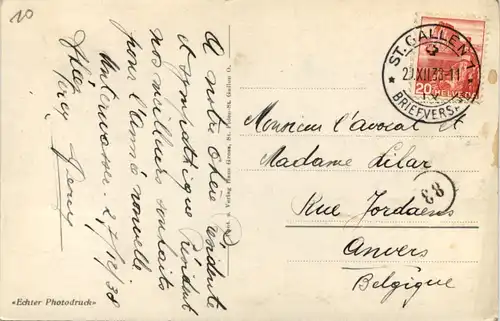 10
A notre chère Présidente
et sympathique Président
nos meilleurs souhaits
pour l'année nouvelle
Unterwasser 27/12/38
Photo. u. Verlag Hans Gross, St. Fiden-St. Gallen O.
«Echter Photodruck»
ST. GALLEN 1
XII.38-11
BRIEFVERSAND
20 HELVETIA
Monsieur l'avocat et
Madame Lilar
83
Rue Jordaens
Anvers
Belgique